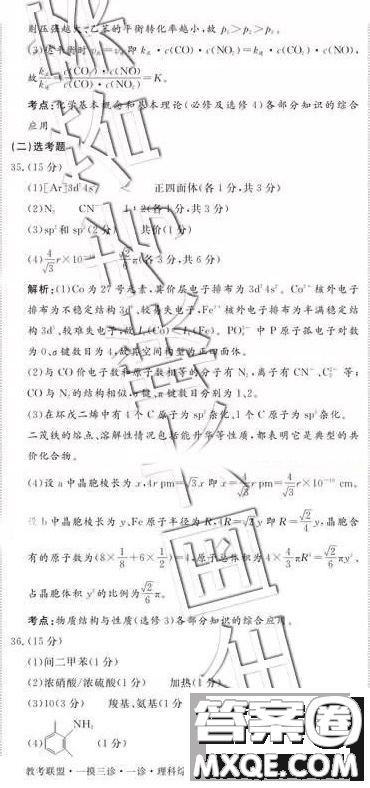 刖压强越大,乙苯的平衡转化率越小,故 p₁>p₂>p₃。
(3)达平衡时 v正=v逆 即 k正·c(CO)·c(NO₂)=k逆·c(CO₂)·c(NO),
故 k正/k逆 = c(CO₂)·c(NO)/c(CO)·c(NO₂) =K。
考点:化学基本概念和基本理论(必修及选修 4)各部分知识的综合
应用
(二)选考题
35.(15 分)
(1)[Ar]3d⁷4s² < 正四面体(各 1 分,共 3 分)
(2)N₂ CN⁻ 1:2(各 1 分,共 3 分)
(3)sp² 和 sp³(2 分) 共价(1 分)
(4) 4/√3 r×10⁻¹⁰ √2/6 π(各 3 分,共 6 分)
解析:(1)Co 为 27 号元素,其价层电子排布为 3d⁷4s²。Co²⁺ 核外电子
排布为不稳定结构 3d⁷,较易失电子,Fe²⁺ 核外电子排布为
构 3d⁵,较难失电子,故 I₃(Co)<I₃(Fe)。PO₄³⁻ 中 P 原子孤电子对数
为 0,σ 键数目为 4,故其空间构型为正四面体。
(2)与 CO 价电子数和原子数相等的分子有 N₂,离子有 CN⁻、C₂²⁻ 等;
CO 与 N₂ 的结构相似,σ 键、π 键数目分别为 1、2。
(3)在环戊二烯中有 4 个 C 原子为 sp² 杂化,1 个 C 原子为 sp³ 杂化。
二茂铁的熔点、溶解性情况包括能升华等性质,都表明它是典型的共
价化合物。
(4)设 a 中晶胞棱长为 x,4r pm=√3 x 即 x= 4/√3 r pm= 4/√3 r×10⁻¹⁰ cm。
设 b 中晶胞棱长为 y,Fe 原子半径为 R,4R=√2 y 即 R= √2/4 y,晶胞含
有的原子数为(8×1/8+6×1/2)=4,原子总体积为 4×4/3 πR³= √2/6 πy³,
占晶胞体积 y³ 的比例为 √2/6 π。
考点:物质结构与性质(选修 3)各部分知识的综合应用。
36.(15 分)
(1)间二甲苯(1 分)
(2)浓硝酸/浓硫酸(1 分) 加热(1
(3)10(3 分) 羧基、氨基(1 分
(4) NH₂ (1 分)
教考联盟·一摸三诊·一诊·理科综
答案圈
MXQE.COM